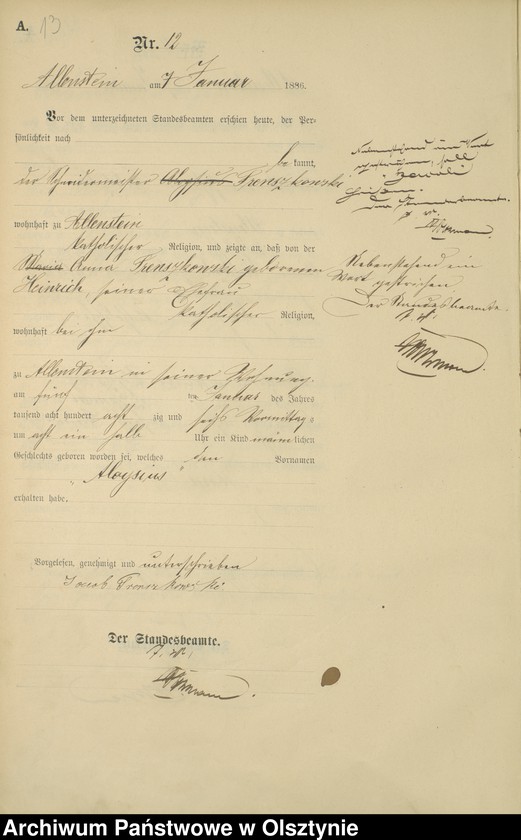 A. 13
Nr. 12
Allenstein am 7 Januar 1886.
Vor dem unterzeichneten Standesbeamten erschien heute, der Per=
sönlichkeit nach
be kannt,
der Schneidermeister Aloysius Frenszkowski
wohnhaft zu Allenstein
katholischer Religion, und zeigte an, daß von der
Maria Anna Frenszkowski geborenen
Heinrich, seiner Ehefrau
katholischer Religion,
wohnhaft bei ihm
zu Allenstein in seiner Wohnung
am fünf ten Januar des Jahres
tausend acht hundert acht zig und sechs Vormittag=
um acht ein halb Uhr ein Kind männ lichen
Geschlechts geboren worden sei, welches den Vornamen
"Aloysius"
erhalten habe.
Vorgelesen, genehmigt und unterschrieben
Jacob Frenszkowski
Der Standesbeamte.
J. V.
ein Wort
gestrichen, soll
"Jacob"
heißen.
Der Standesbeamte.
J. V.
Nebenstehend ein
Wort gestrichen.
Der Standesbeamte.
J. V.
Archiwum Państwowe w Olsztynie